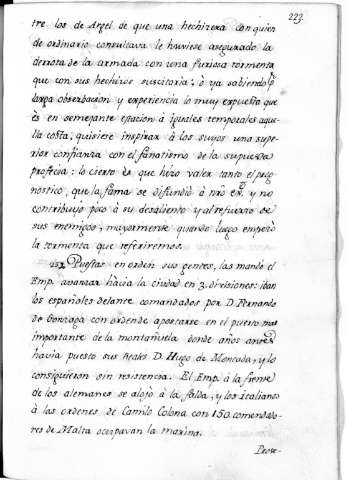 223.
tre los de Argel de que una hechizera con quien
de ordinario consultava le huviese asegurado la
derrota de la armada con una furiosa tormenta
que con sus hechizos suscitaria: ò ya sabiendo pr
larga observacion y experiencia lo muy expuesta que
és en semejante estacion à iguales temporales aque-
lla costa, quisiere inspirar à los suyos una supe-
rior confianza con el fanatismo de la supuesta
profecia: lo cierto és que hizo valer tanto el prog-
nostico, que la fama se difundiò à nro exto, y no
contribuyò poco à su desaliento y al refuerzo de
sus enemigos, mayormente quando luego empezò
la tormenta que referiremos.
232. Puestas en orden sus gentes, las mandò el
Emp. avanzar hàcia la ciudad en 3. divisiones: iban
los españoles delante comandados por D. Fernando
de Gonzaga con orden de apostarse en el puerto mas
importante de la montañuela donde años antes
havia puesto sus Reales D. Hugo de Moncada, y lo
consiguieron sin resistencia. El Emp. à la frente
de los alemanes se alojò à la falda, y los italianos
à las ordenes de Camilo Colona con 150. comendado-
res de Malta ocupavan la marina.